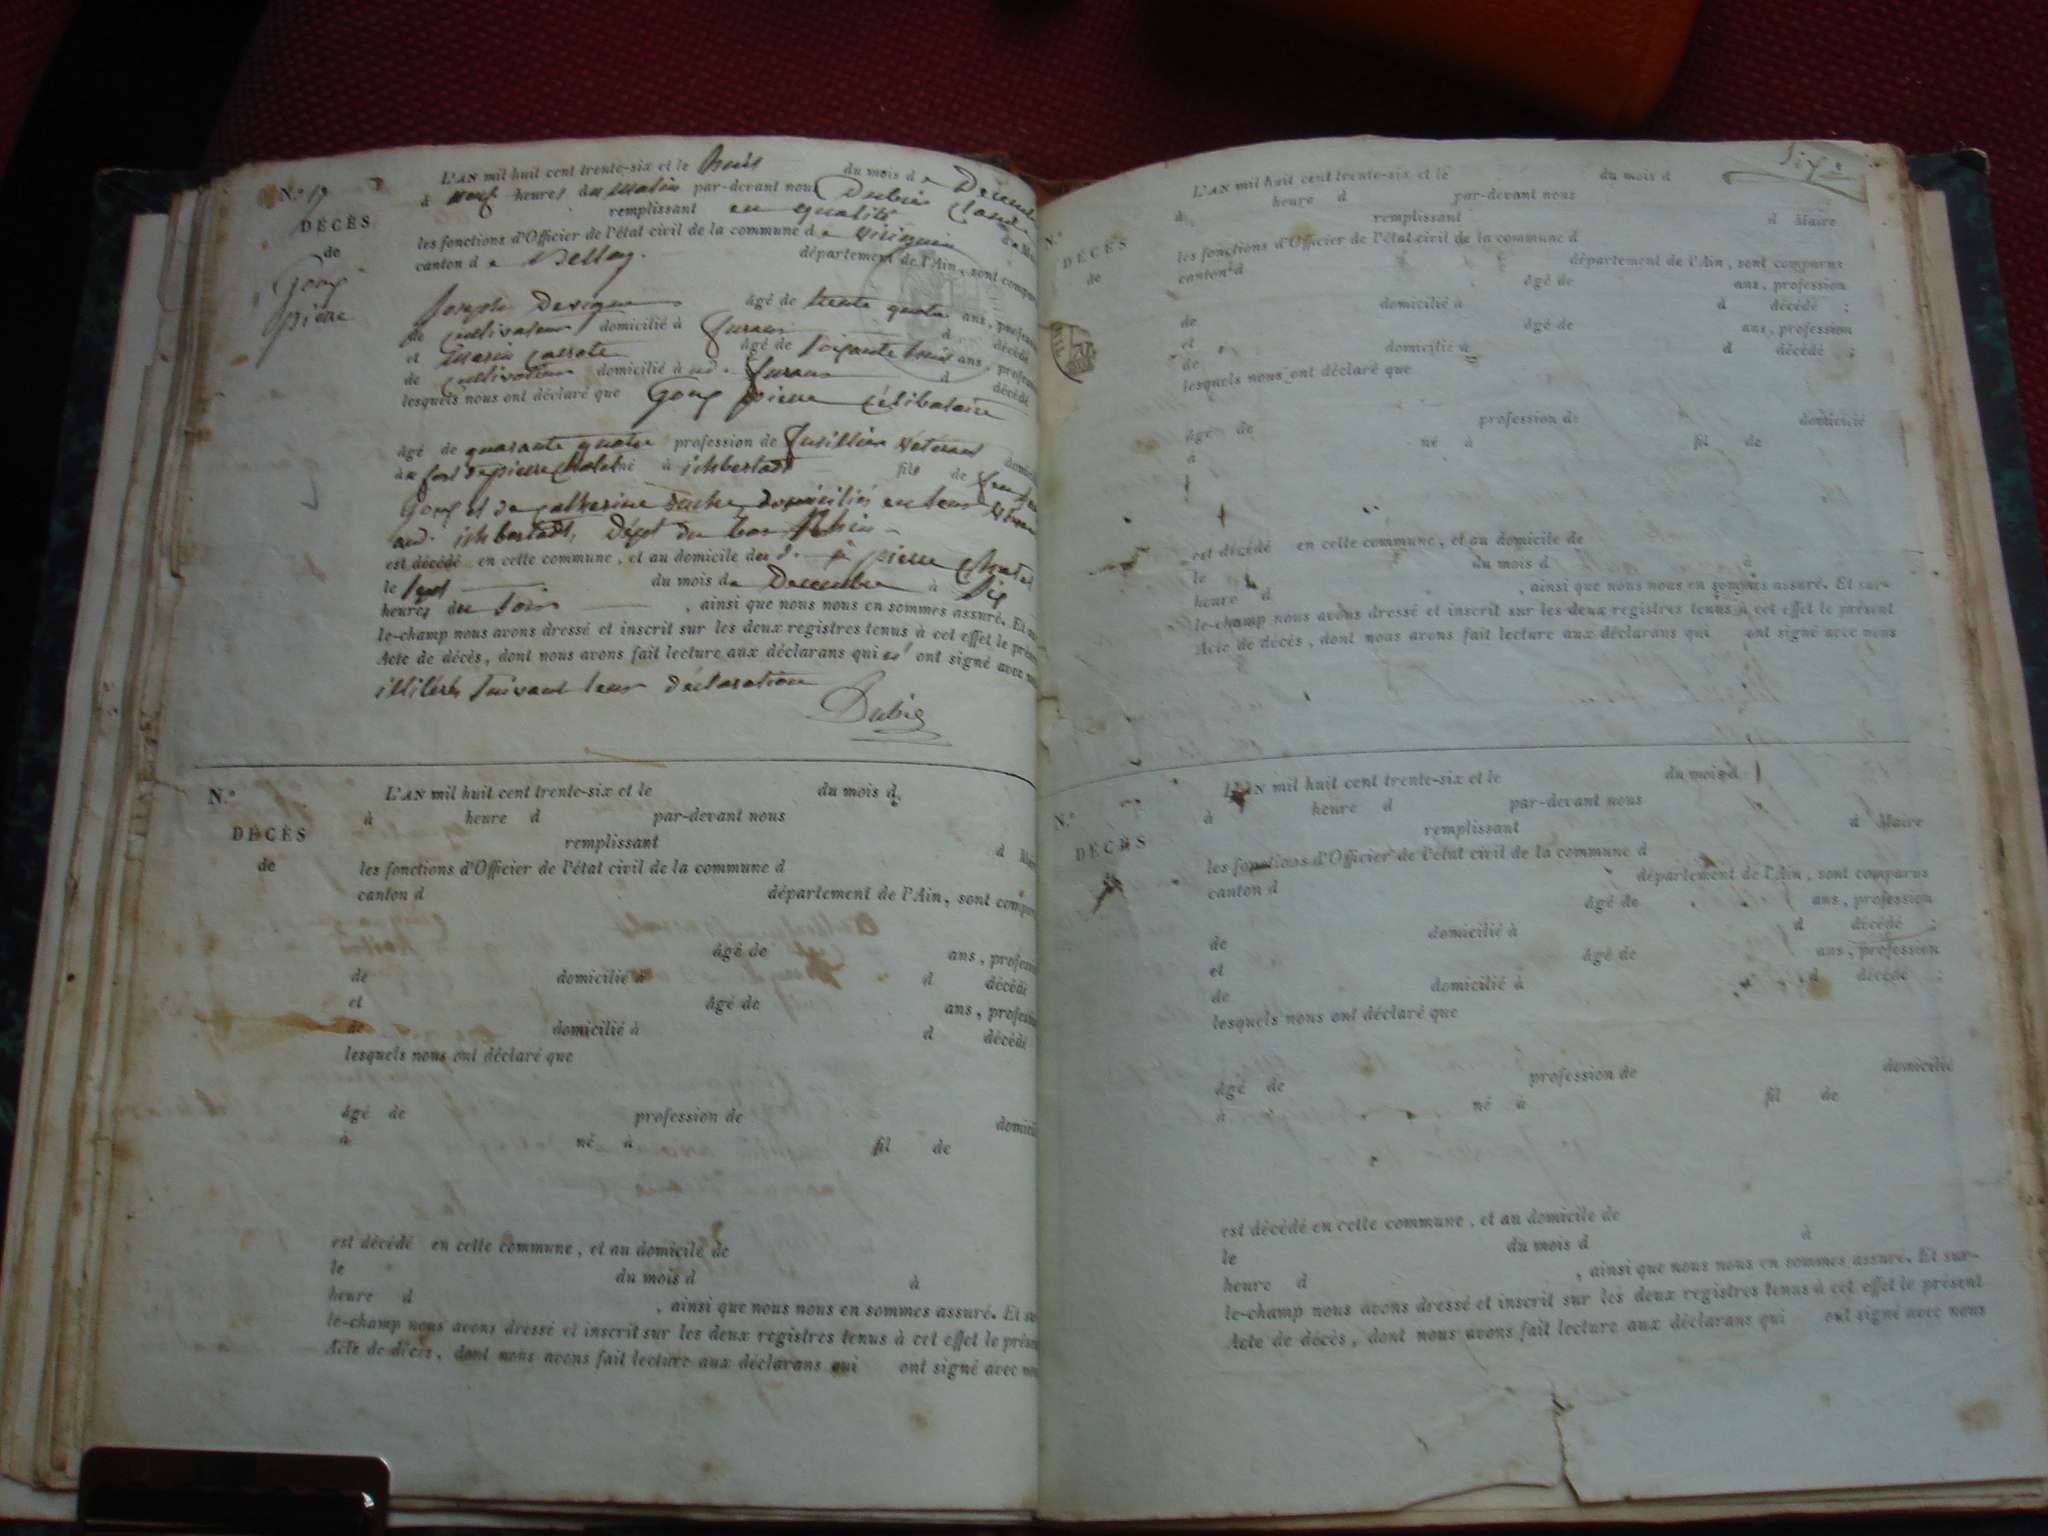 N.° 19
DÉCÈS
de
Goux
pierre
L'AN mil huit cent trente-six et le huit du mois de Décembre
à neuf heures du matin par-devant nous Dubié Claude
remplissant en qualité de M
les fonctions d'Officier de l'état civil de la commune de
canton de Belley. département de l'Ain, sont compar
Joseph âgé de trente quatre ans, profess
de cultivateur domicilié à d décédé
et âgé de soixante trois ans, profess
de cultivateur domicilié à d décédé
lesquels nous ont déclaré que Goux pierre célibataire
âgé de quarante quatre profession de fusillier vétéran domici
au fort de pierre Chatel né à ichbertadt fils de
Goux et de catherine domiciliés en leur vivant
aud. ichbertadt, dépt du bas Rhin
est décédé en cette commune, et au domicile de à pierre Chatel
le sept du mois de Décembre à six
heures du soir , ainsi que nous nous en sommes assuré. Et su
le-champ nous avons dressé et inscrit sur les deux registres tenus à cet effet le prése
Acte de décès, dont nous avons fait lecture aux déclarans qui n' ont signé avec nou
illiterés suivant leur déclaration
Dubié
N.°
DÉCÈS
de
L'AN mil huit cent trente-six et le du mois d
à heure d par-devant nous
remplissant d Mair
les fonctions d'Officier de l'état civil de la commune d
canton d département de l'Ain, sont compar
âgé de ans, profess
de domicilié à d décédé
et âgé de ans, profess
de domicilié à d décédé
lesquels nous ont déclaré que
âgé de profession de domicil
à né à fil de
est décédé en cette commune, et au domicile de
le du mois d à
heure d , ainsi que nous nous en sommes assuré. Et su
le-champ nous avons dressé et inscrit sur les deux registres tenus à cet effet le prése
Acte de décès, dont nous avons fait lecture aux déclarans qui ont signé avec nou
N.°
DÉCÈS
de
L'AN mil huit cent trente-six et le du mois d
à heure d par-devant nous
remplissant d Maire
les fonctions d'Officier de l'état civil de la commune d
canton d département de l'Ain, sont comparus
âgé de ans, profession
de domicilié à d décédé ;
et âgé de ans, profession
de domicilié à d décédé ;
lesquels nous ont déclaré que
âgé de profession de domicilié
à né à fil de
est décédé en cette commune, et au domicile de
le du mois d à
heure d , ainsi que nous nous en sommes assuré. Et sur-
le-champ nous avons dressé et inscrit sur les deux registres tenus à cet effet le présent
Acte de décès, dont nous avons fait lecture aux déclarans qui ont signé avec nous
N.°
DÉCÈS
de
L'AN mil huit cent trente-six et le du mois d
à heure d par-devant nous
remplissant d Maire
les fonctions d'Officier de l'état civil de la commune d
canton d département de l'Ain, sont comparus
âgé de ans, profession
de domicilié à d décédé ;
et âgé de ans, profession
de domicilié à d décédé ;
lesquels nous ont déclaré que
âgé de profession de domicilié
à né à fil de
est décédé en cette commune, et au domicile de
le du mois d à
heure d , ainsi que nous nous en sommes assuré. Et sur-
le-champ nous avons dressé et inscrit sur les deux registres tenus à cet effet le présent
Acte de décès, dont nous avons fait lecture aux déclarans qui ont signé avec nous